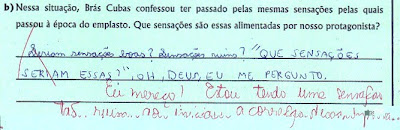 b) Nessa situação, Brás Cubas confessou ter passado pelas mesmas sensações pelas quais
passou à época do emplasto. Que sensações são essas alimentadas por nosso protagonista?
Seriam sensações boas? Sensações ruins? "QUE SENSAÇÕES
SERIAM ESSAS?", OH, DEUS, EU ME PERGUNTO.
Eu mereço! Estou tendo uma sensação
tão ruim ao iniciar a correção